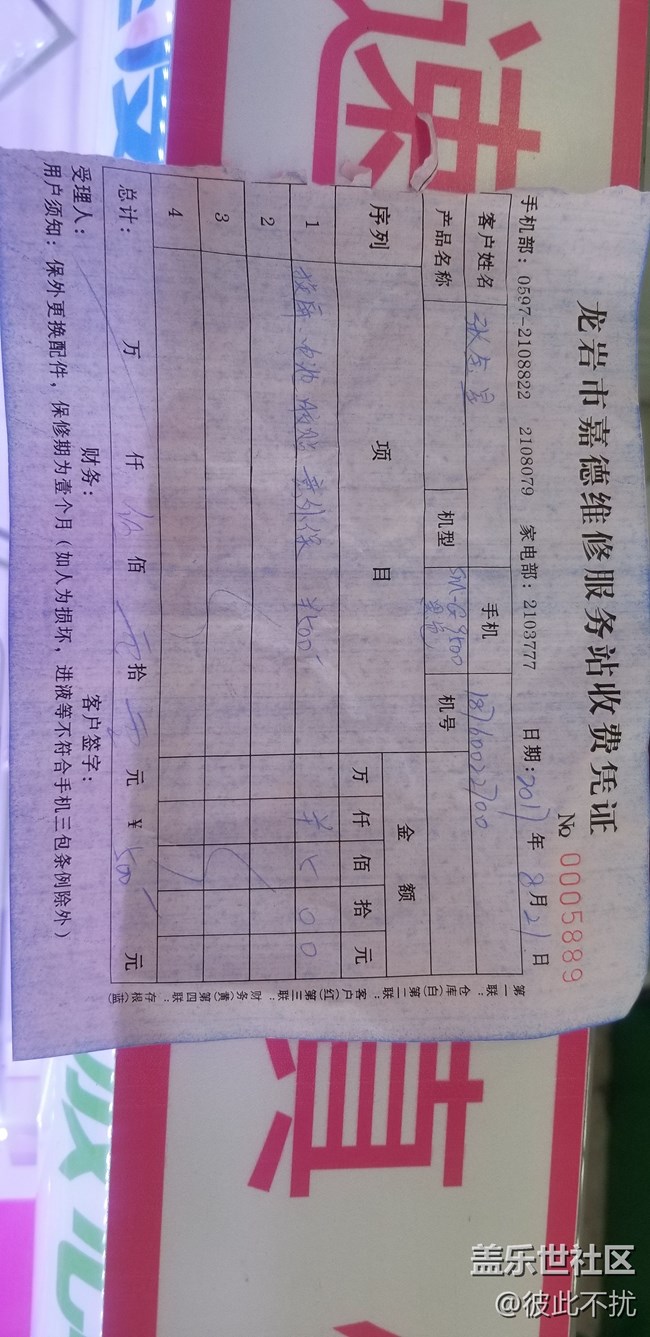 龙岩市嘉德维修服务站收费凭证
№ 0005889
手机部：0597-2108822 2108079 家电部：2103777 日期：2017年8月21日
客户姓名 手机 18760022700
产品名称 机型 SM-G9500 机号
序列 项目 金额
万 仟 佰 拾 元
1 换屏 电池 胶贴 意外保 ¥500 ¥ 5 0 0
2
3
4
总计： 万 仟 伍 佰 元 拾 元 ¥ 500 元
受理人： 财务： 客户签字：
用户须知：保外更换配件，保修期为壹个月（如人为损坏，进液等不符合手机三包条例除外）
第一联：仓库（白）第二联：客户（红）第三联：财务（黄）第四联：存根（蓝）
速
真
盖乐世社区
@彼此不扰